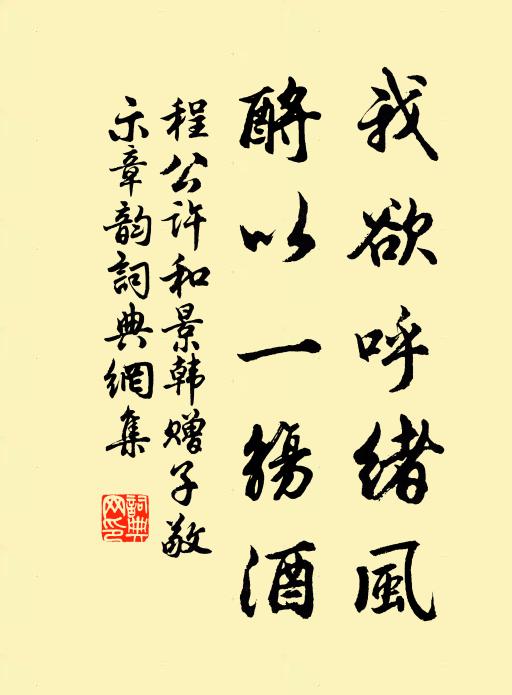 我欲呼緒風
酹以一觴酒
程公许和景韩赠子敬
示章韵詞典網集
詞典網印